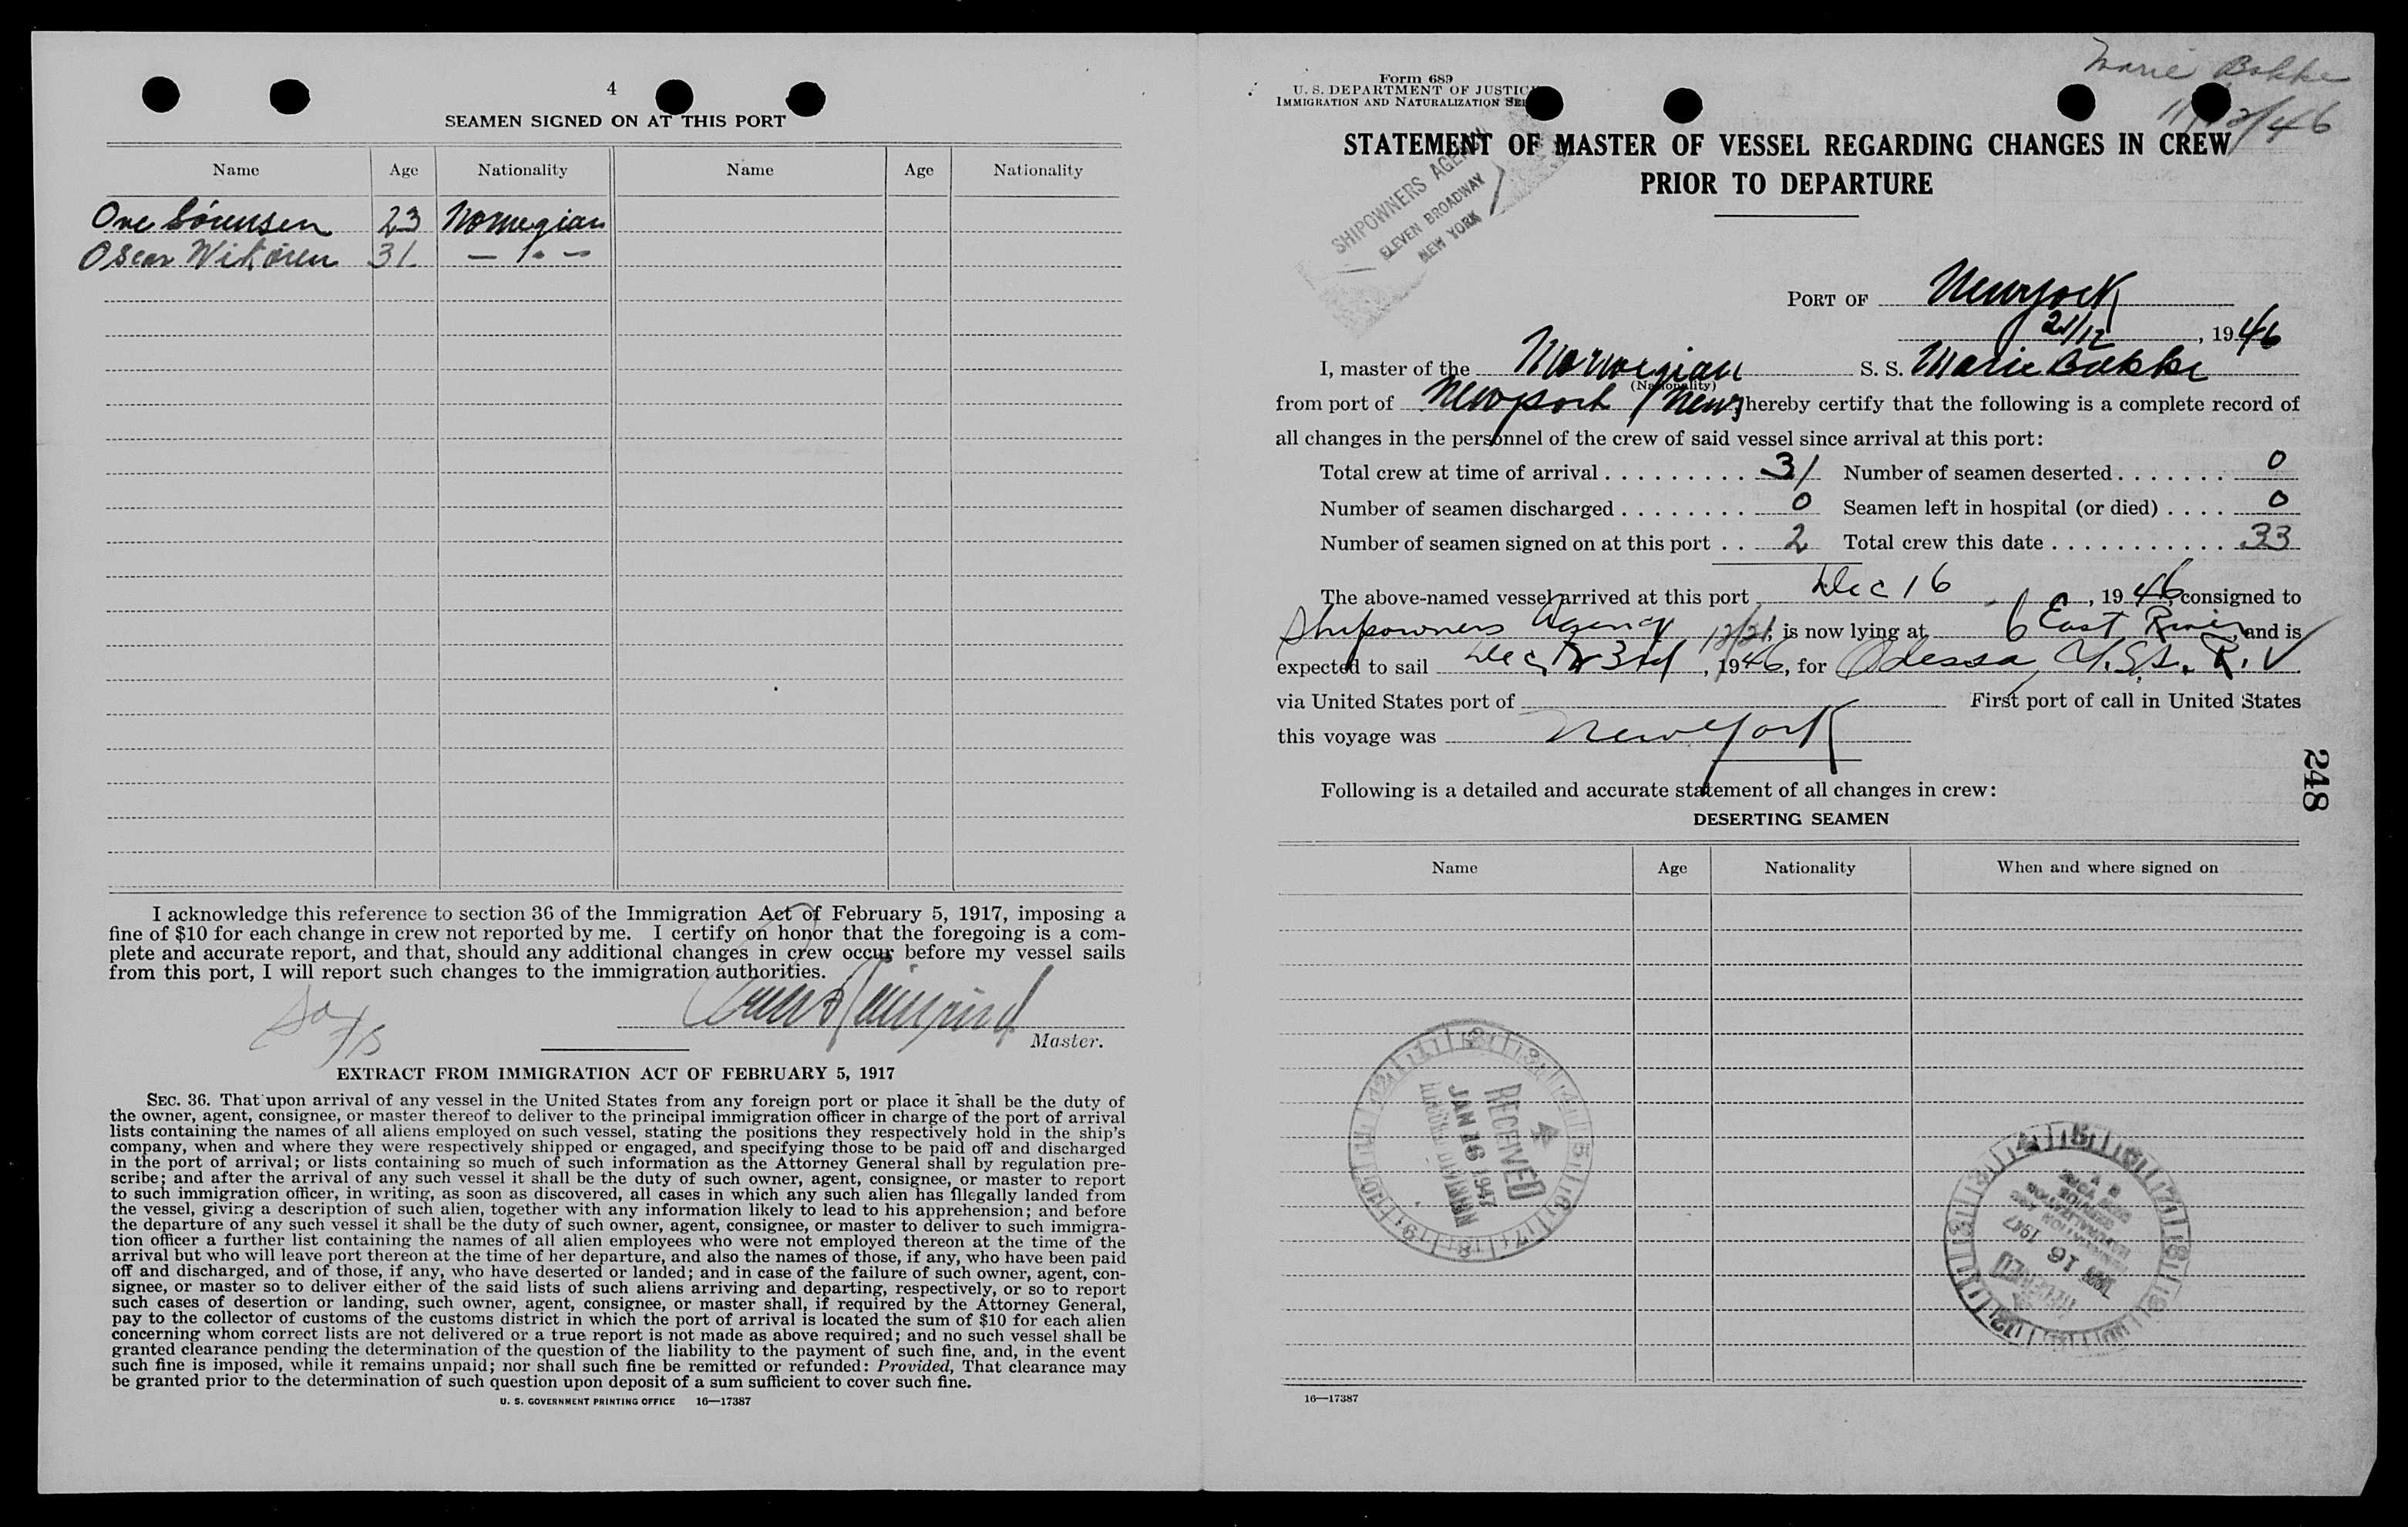 4
SEAMEN SIGNED ON AT THIS PORT
Name Age Nationality Name Age Nationality
Ove Sörensen 23 Norwegian
Oscar Wikören 31 — " —
I acknowledge this reference to section 36 of the Immigration Act of February 5, 1917, imposing a
fine of $10 for each change in crew not reported by me. I certify on honor that the foregoing is a com-
plete and accurate report, and that, should any additional changes in crew occur before my vessel sails
from this port, I will report such changes to the immigration authorities.
Master.
EXTRACT FROM IMMIGRATION ACT OF FEBRUARY 5, 1917
SEC. 36. That upon arrival of any vessel in the United States from any foreign port or place it shall be the duty of
the owner, agent, consignee, or master thereof to deliver to the principal immigration officer in charge of the port of arrival
lists containing the names of all aliens employed on such vessel, stating the positions they respectively hold in the ship's
company, when and where they were respectively shipped or engaged, and specifying those to be paid off and discharged
in the port of arrival; or lists containing so much of such information as the Attorney General shall by regulation pre-
scribe; and after the arrival of any such vessel it shall be the duty of such owner, agent, consignee, or master to report
to such immigration officer, in writing, as soon as discovered, all cases in which any such alien has illegally landed from
the vessel, giving a description of such alien, together with any information likely to lead to his apprehension; and before
the departure of any such vessel it shall be the duty of such owner, agent, consignee, or master to deliver to such immigra-
tion officer a further list containing the names of all alien employees who were not employed thereon at the time of the
arrival but who will leave port thereon at the time of her departure, and also the names of those, if any, who have been paid
off and discharged, and of those, if any, who have deserted or landed; and in case of the failure of such owner, agent, con-
signee, or master so to deliver either of the said lists of such aliens arriving and departing, respectively, or so to report
such cases of desertion or landing, such owner, agent, consignee, or master shall, if required by the Attorney General,
pay to the collector of customs of the customs district in which the port of arrival is located the sum of $10 for each alien
concerning whom correct lists are not delivered or a true report is not made as above required; and no such vessel shall be
granted clearance pending the determination of the question of the liability to the payment of such fine, and, in the event
such fine is imposed, while it remains unpaid; nor shall such fine be remitted or refunded: Provided, That clearance may
be granted prior to the determination of such question upon deposit of a sum sufficient to cover such fine.
U. S. GOVERNMENT PRINTING OFFICE 16—17387
Marie Bakke
Form 689
U. S. DEPARTMENT OF JUSTICE
IMMIGRATION AND NATURALIZATION
STATEMENT OF MASTER OF VESSEL REGARDING CHANGES IN CREW
PRIOR TO DEPARTURE
SHIPOWNERS AGENCY
ELEVEN BROADWAY
NEW YORK
PORT OF Newyork
21/12, 1946
I, master of the Norwegian S. S. Marie Bakke
(Nationality)
from port of Newport News hereby certify that the following is a complete record of
all changes in the personnel of the crew of said vessel since arrival at this port:
Total crew at time of arrival 31 Number of seamen deserted 0
Number of seamen discharged 0 Seamen left in hospital (or died) 0
Number of seamen signed on at this port 2 Total crew this date 33
The above-named vessel arrived at this port Dec 16, 1946, consigned to
Shipowners Agency 12/21, is now lying at 6 East River, and is
expected to sail Dec 23rd, 1946, for Odessa
via United States port of First port of call in United States
this voyage was New York
Following is a detailed and accurate statement of all changes in crew:
DESERTING SEAMEN
Name Age Nationality When and where signed on
RECEIVED
JAN 16 1947
JAN 16 1947
16—17387
248